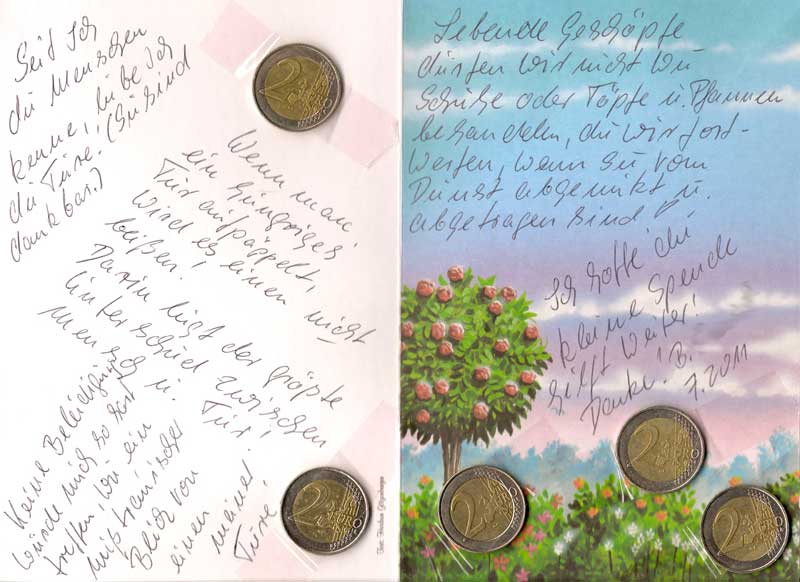 Seit Ich
die Menschen
kenne, liebe Ich
die Tiere. (Sie sind
dankbar.)
Wenn man
ein hungriges
Tier aufpäppelt,
wird es einen nicht
beißen!
Darin liegt der größte
Unterschied zwischen
Mensch u. Tier!
Keine Beleidigung
würde mich so hart
treffen, wie ein
mißtrauischer
Blick von
einem meiner
Tiere!
Text:
Lebende Geschöpfe
dürfen wir nicht wie
Schuhe oder Töpfe u. Pfannen
behandeln, die wir fort-
werfen, wenn sie vom
Dienst abgenützt u.
abgetragen sind
Ich hoffe die
kleine Spende
hilft weiter!
Danke! B.
7.2011
2 EURO
2 EURO
2 EURO
2 EURO
2 EURO